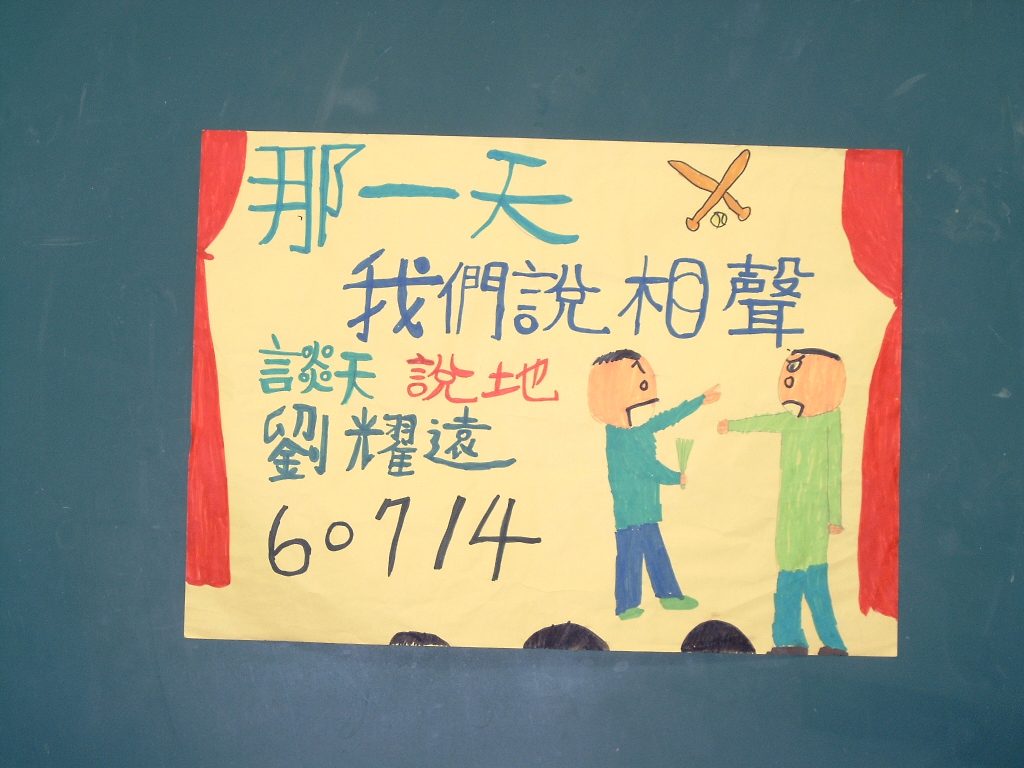 那一天
我們說相聲
談天 說地
劉耀遠
60714